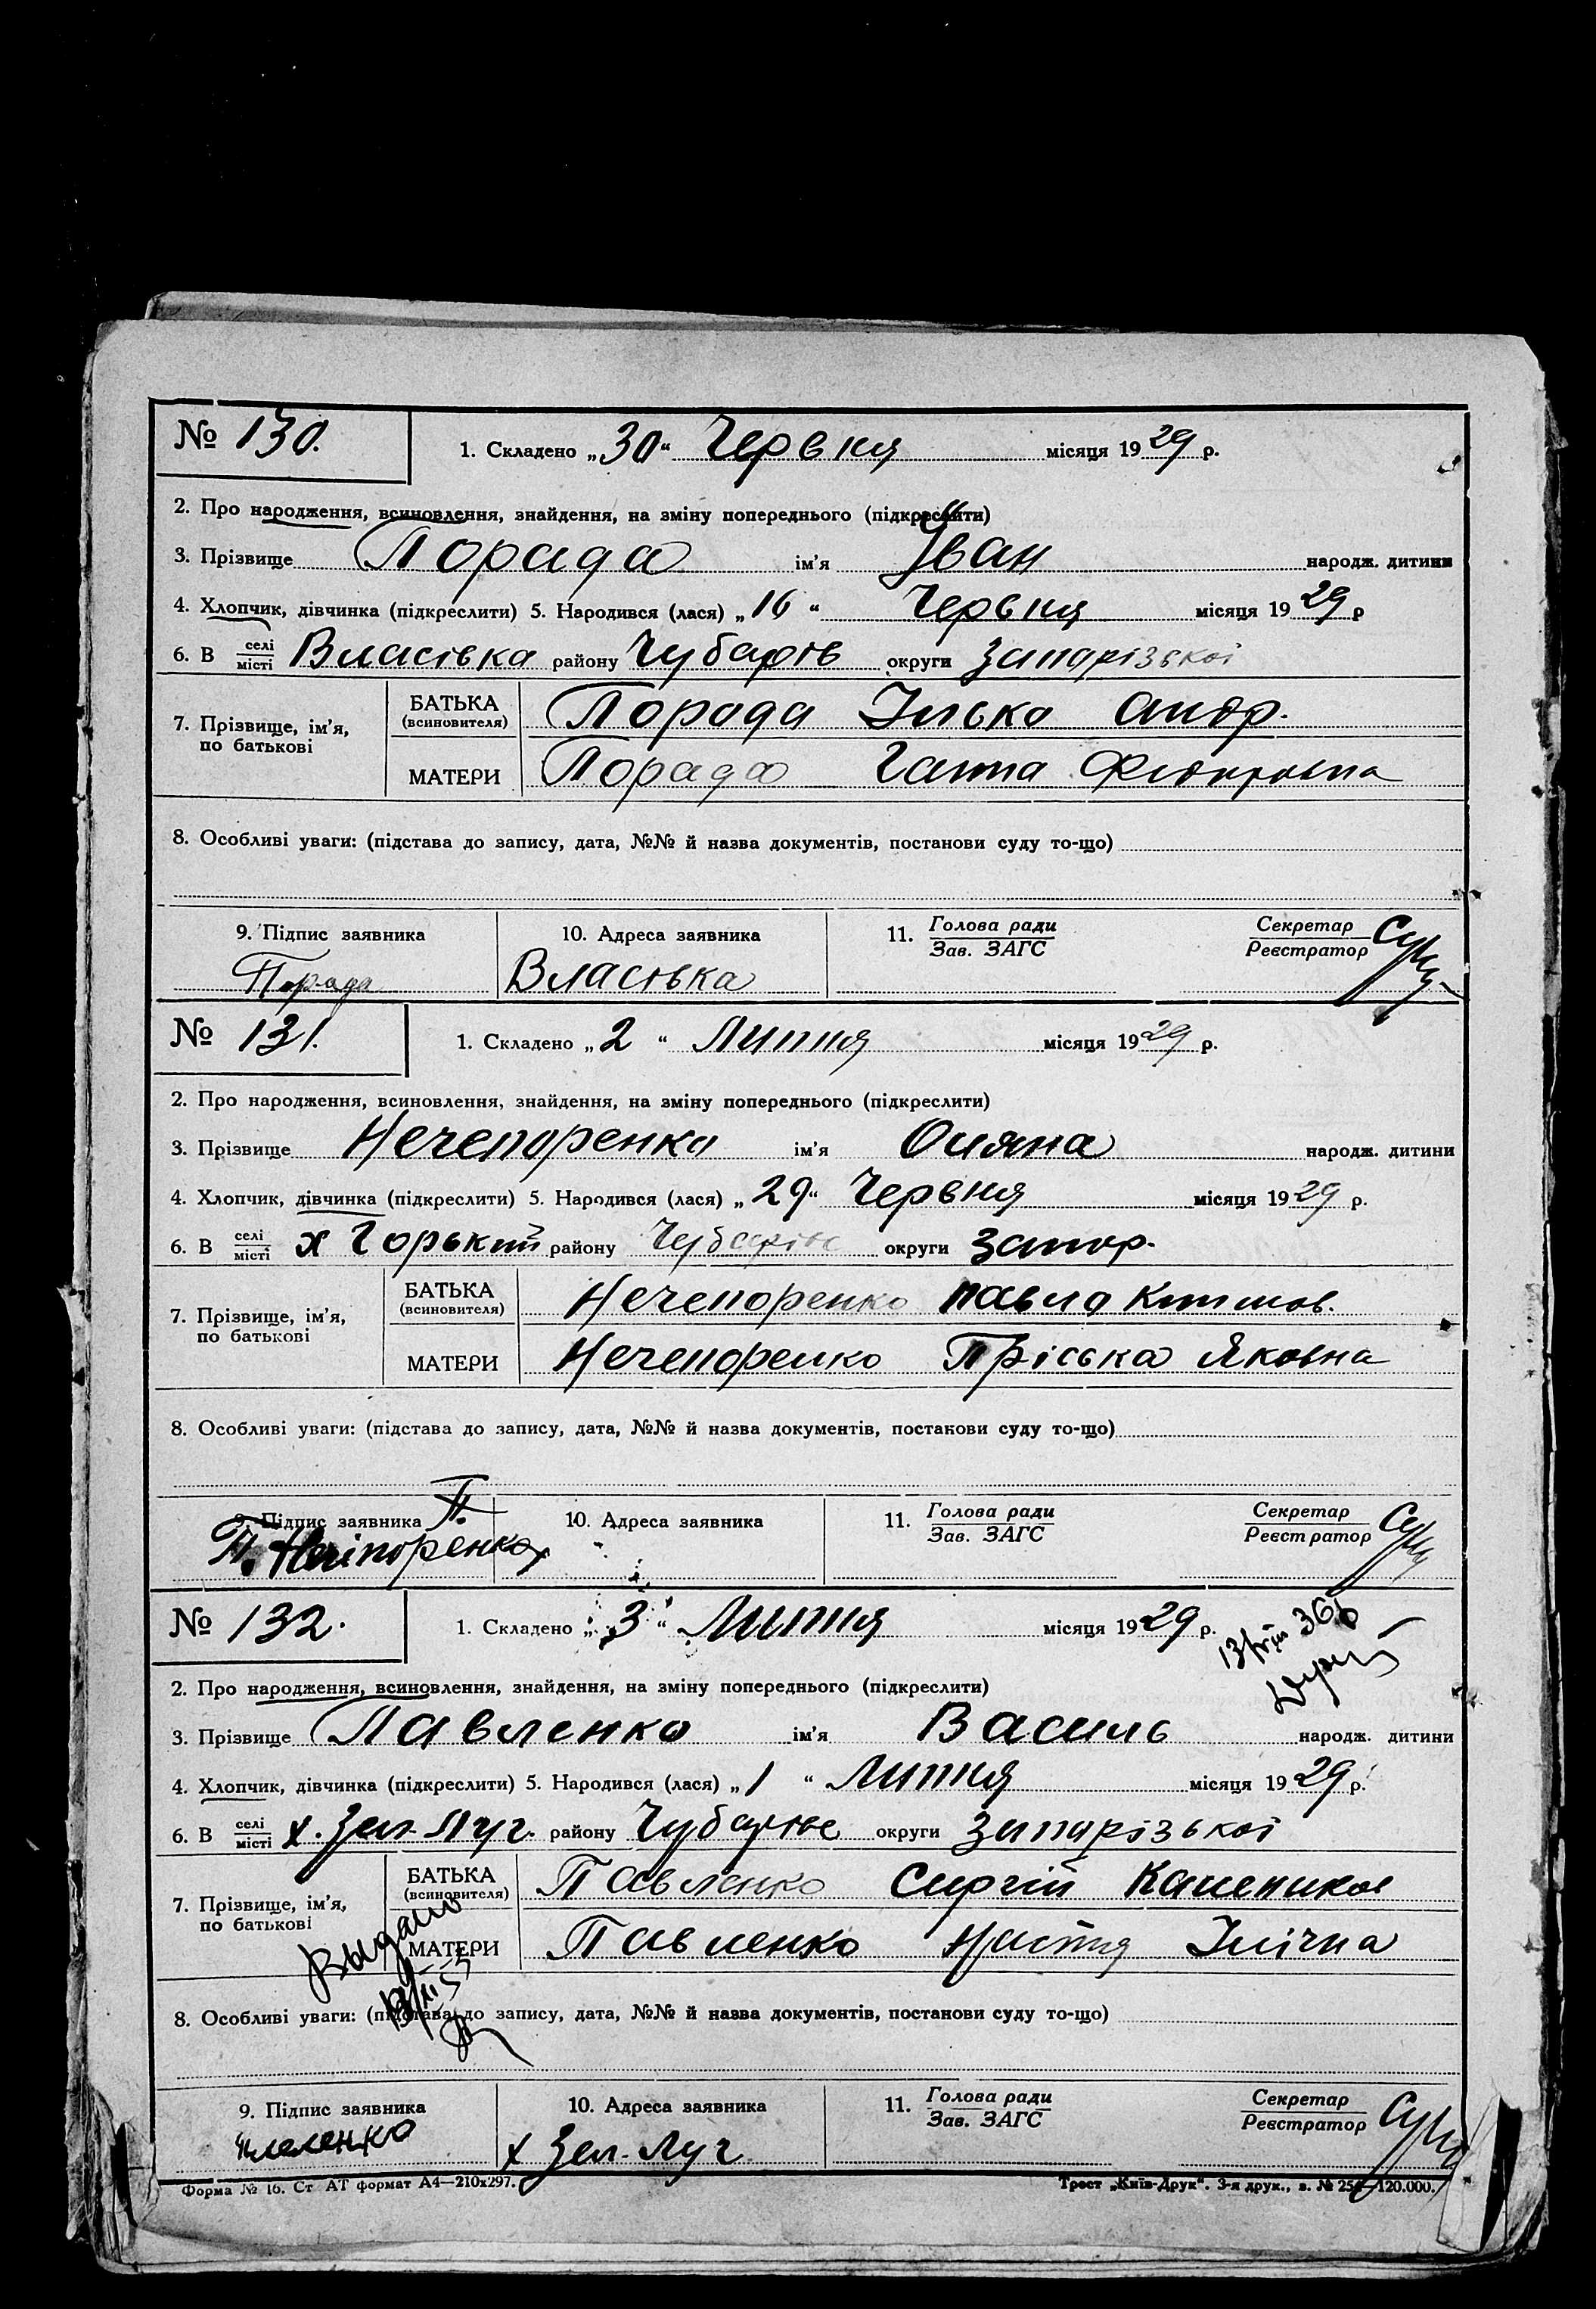 № 130. 1. Складено „30“ Червня місяця 1929 р.
2. Про народження, всиновлення, знайдення, на зміну попереднього (підкреслити)
3. Прізвище Порада ім'я Іван народж. дитини
4. Хлопчик, дівчинка (підкреслити) 5. Народився (лася) „16“ Червня місяця 1929 р
6. В селі місті Власівка району Чубарів округи Запорізької
7. Прізвище, ім'я, по батькові
БАТЬКА (всиновителя) Порада Ілько Андр.
МАТЕРИ Порада Ганна
8. Особливі уваги: (підстава до запису, дата, №№ й назва документів, постанови суду то-що)
9. Підпис заявника 10. Адреса заявника 11. Голова ради Зав. ЗАГС Секретар Реєстратор
Порада Власівка
№ 131. 1. Складено „2“ Липня місяця 1929 р.
2. Про народження, всиновлення, знайдення, на зміну попереднього (підкреслити)
3. Прізвище Нечепоренко ім'я народж. дитини
4. Хлопчик, дівчинка (підкреслити) 5. Народився (лася) „29“ Червня місяця 1929 р.
6. В селі місті х Горький району округи Запор.
7. Прізвище, ім'я, по батькові
БАТЬКА (всиновителя) Нечепоренко Павло
МАТЕРИ Нечепоренко Пріська Яковна
8. Особливі уваги: (підстава до запису, дата, №№ й назва документів, постанови суду то-що)
9. Підпис заявника 10. Адреса заявника 11. Голова ради Зав. ЗАГС Секретар Реєстратор
П. Нечіпоренко
№ 132. 1. Складено „3“ Липня місяця 1929 р.
2. Про народження, всиновлення, знайдення, на зміну попереднього (підкреслити)
3. Прізвище Павленко ім'я Василь народж. дитини
4. Хлопчик, дівчинка (підкреслити) 5. Народився (лася) „1“ Липня місяця 1929 р.
6. В селі місті х. Зел. Луг. району округи Запорізької
7. Прізвище, ім'я, по батькові
БАТЬКА (всиновителя) Павленко Сиргій
МАТЕРИ Павленко Настя Ілічна
Выдано
8. Особливі уваги: (підстава до запису, дата, №№ й назва документів, постанови суду то-що)
9. Підпис заявника 10. Адреса заявника 11. Голова ради Зав. ЗАГС Секретар Реєстратор
х Зел. Луг
Форма № 16. Ст АТ формат А4—210х297. Трест „Київ-Друк“. 3-я друк., з. № 120.000.